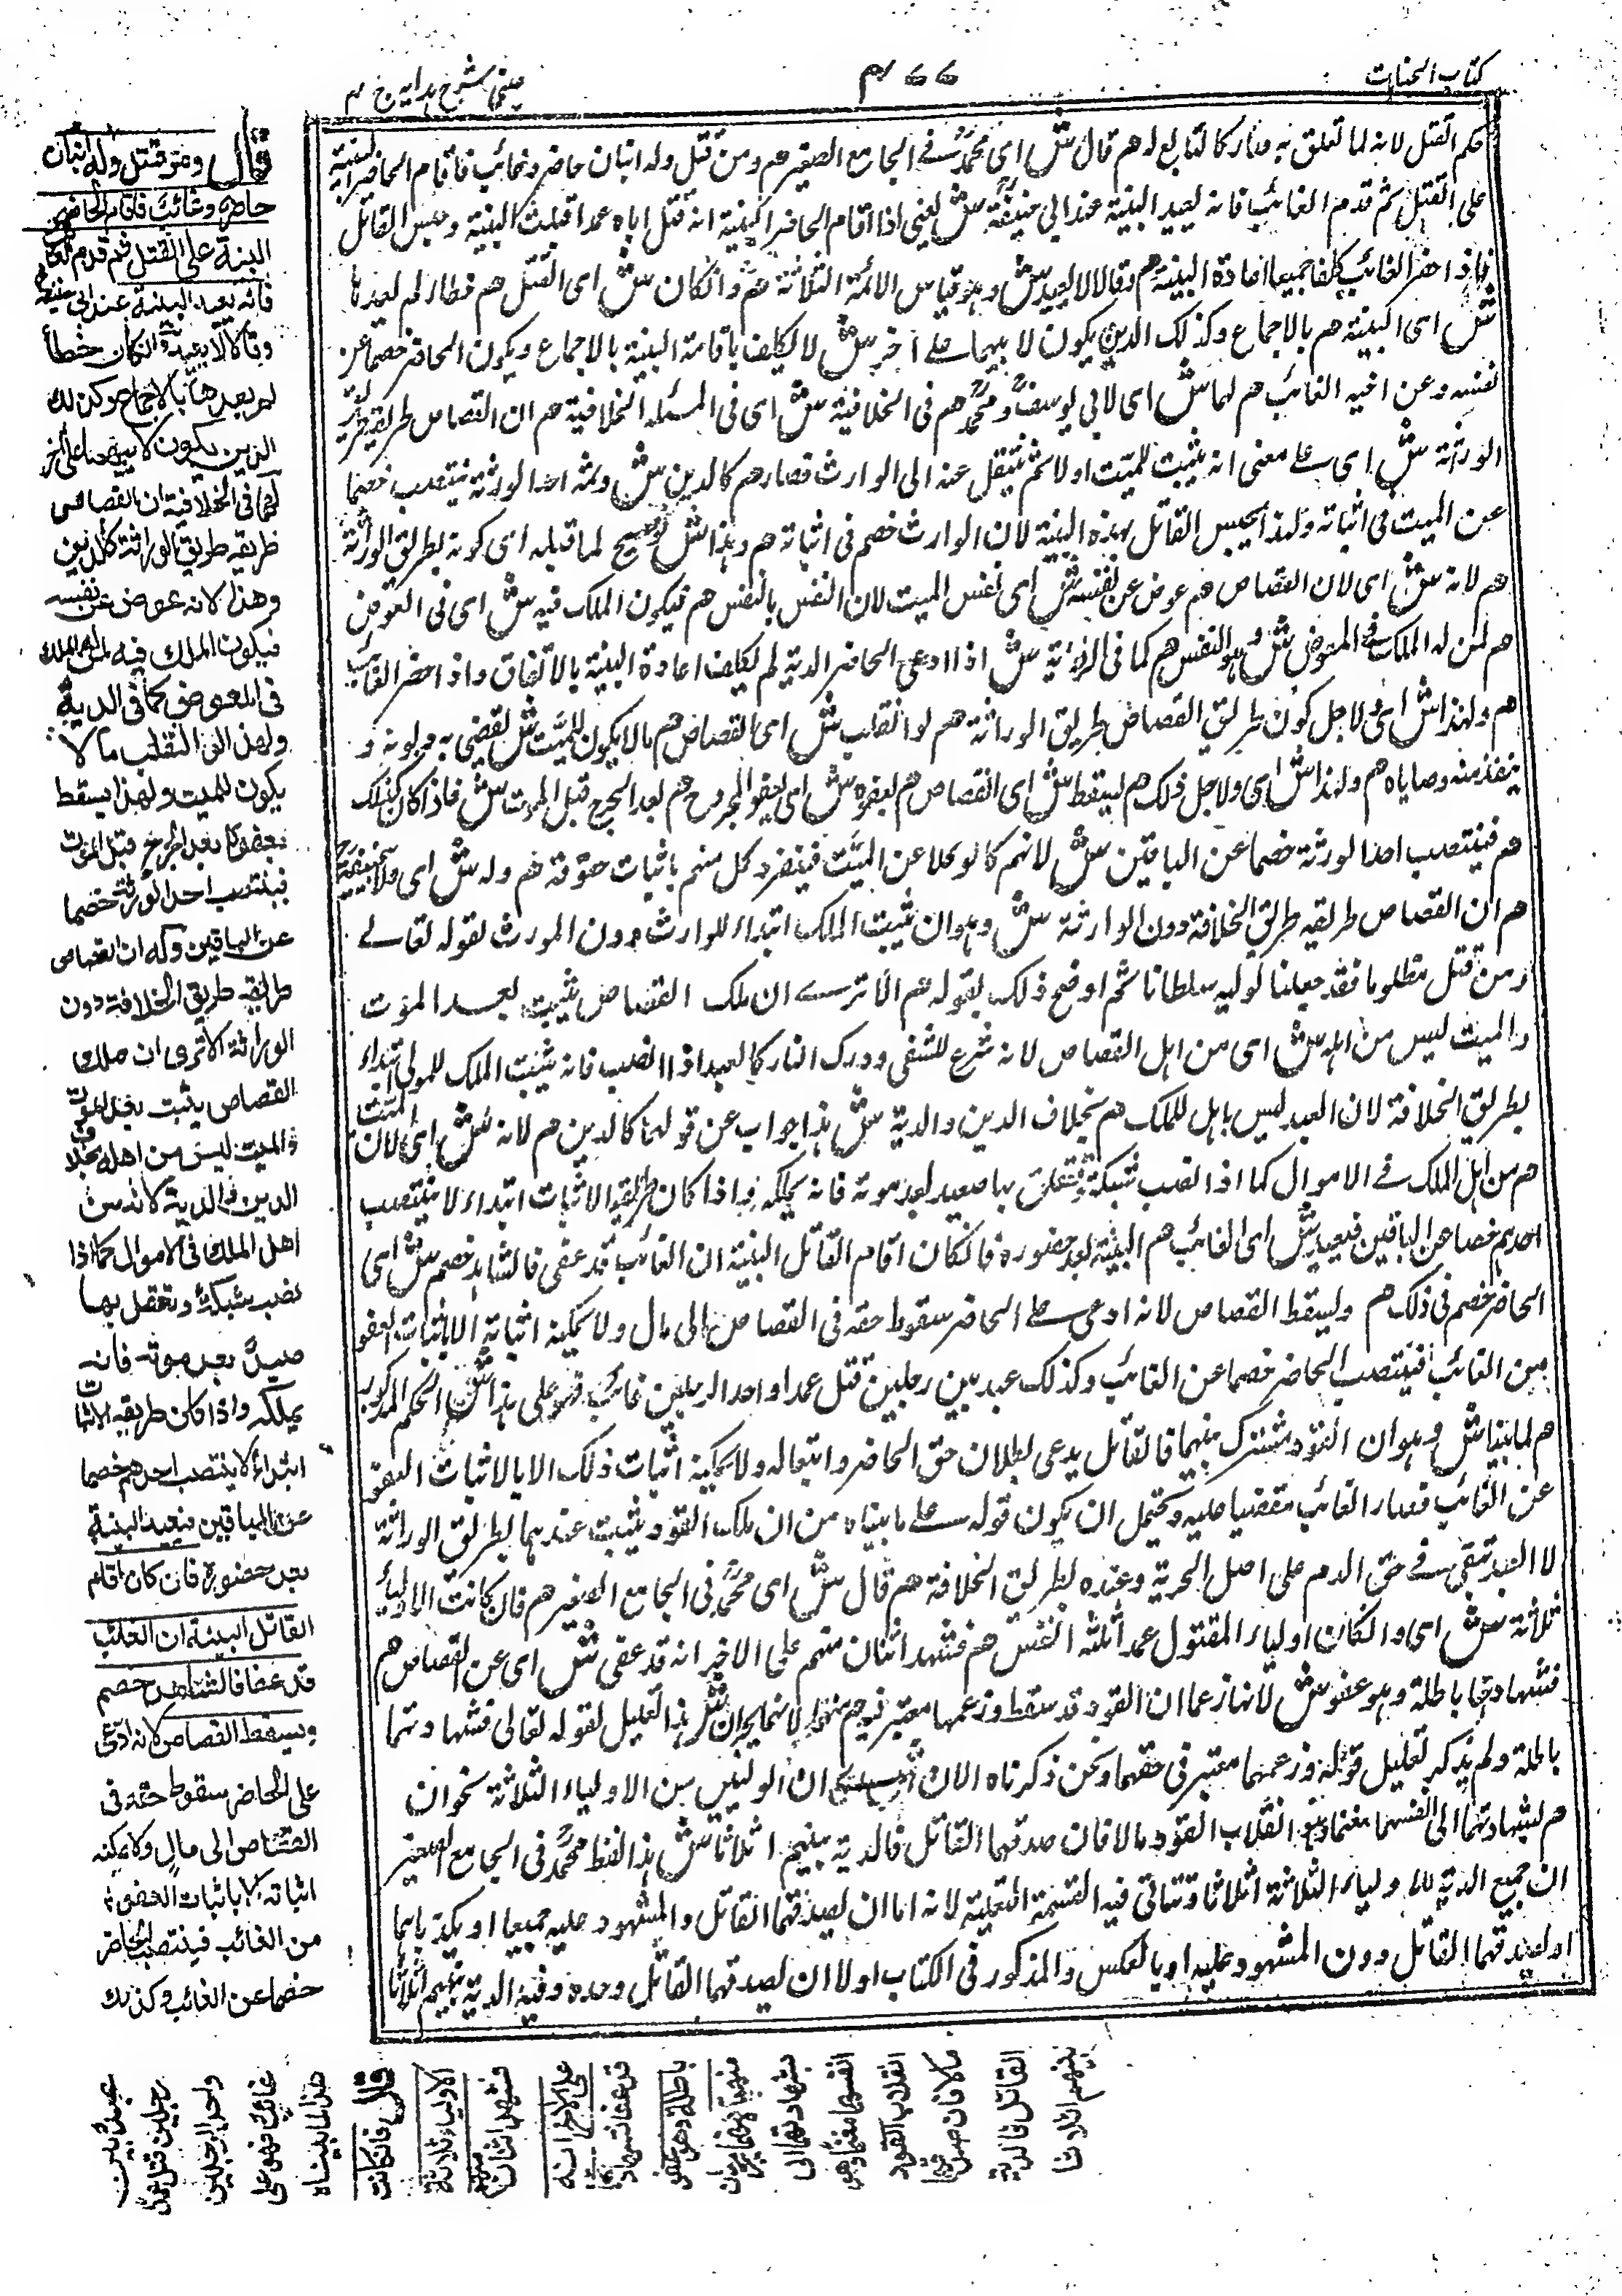 كتاب الجنايات
٤٦٦
عيني شرح هدايه ج ٤
حكم القتل لانه لما تعلق به صار كالتابع له هم قال ش اى محمد فى الجامع الصغير هم ومن قتل وله ابنان حاضر وغائب فاقام الحاضر البينة
على القتل ثم قدم الغائب فانه يعيد البينة عند ابي حنيفة ش يعني اذا اقام الحاضر البينة انه قتل اباه عمدا قبلت البينة وحبس القاتل
فاذا حضر الغائب كلفا جميعا اعادة البينة هم وقالا لا يعيد ش وهو قياس الائمة الثلاثة هم وان كان ش اى القتل هم خطا لم يعدها
ش اى البينة هم بالاجماع وكذلك الدين يكون لابيهما على آخر ش لا يكلف باقامة البينة بالاجماع ويكون الحاضر خصما عن
نفسه وعن اخيه الغائب هم لهما ش اى لابي يوسف ومحمد هم فى الخلافية ش اى فى المسئلة الخلافية هم ان القصاص طريقه طريق
الوراثة ش اى على معنى انه يثبت للميت اولا ثم ينتقل عنه الى الوارث فصار هم كالدين ش وثمه احد الورثة ينتصب خصما
عن الميت فى اثباته ولهذا يحبس القاتل بهذه البينة لان الوارث خصم فى اثباته هم وهذا ش توضيح لما قبله اى كونه بطريق الوراثة
هم لانه ش اى لان القصاص هم عوض عن نفسه ش اى نفس الميت لان النفس بالنفس هم فيكون الملك فيه ش اى فى العوض
هم لمن له الملك فى المعوض ش وهو النفس هم كما فى الدية ش اذا ادعى الحاضر الدية لم يكلف اعادة البينة بالاتفاق واذا حضر الغائب
هم ولهذا ش اى ولاجل كون طريق القصاص طريق الوراثة هم لو انقلب ش اى القصاص هم مالا يكون للميت ش يقضى به ديونه و
ينفذ منه وصاياه هم ولهذا ش اى ولاجل ذلك هم يسقط ش اى القصاص هم بعفوه ش اى بعفو المجروح هم بعد الجرح قبل الموت ش فاذا كان كذلك
هم فينتصب احد الورثة خصما عن الباقين ش لانهم كالوكلا عن الميت فينفرد كل منهم باثبات حقوقه هم وله ش اى ولابي حنيفة
هم ان القصاص طريقه طريق الخلافة دون الوارثة ش وهو ان يثبت الملك ابتداء للوارث دون المورث لقوله تعالى
ومن قتل مظلوما فقد جعلنا لوليه سلطانا ثم اوضح ذلك بقوله هم الا ترى ان ملك القصاص يثبت بعد الموت
والميت ليس من اهله ش اى من اهل القصاص لانه شرع للتشفى ودرك الثار كالعبد اذا اتهب فانه يثبت الملك للمولى ابتداء
بطريق الخلافة لان العبد ليس باهل للملك هم بخلاف الدين والدية ش هذا جواب عن قولهما كالدين هم لانه ش اى لان الميت
هم من اهل الملك فى الاموال كما اذا نصب شبكة فتعلق بها صيد بعد موته فانه يملكه واذا كان طريقه الاثبات ابتداء لا ينتصب
احدهم خصما عن الباقين فيعيد ش اى الغائب هم البينة بعد حضوره فان كان اقام القاتل البينة ان الغائب قد عفى فالشاهد خصم ش اى
الحاضر خصم فى ذلك هم ويسقط القصاص لانه ادعى على الحاضر سقوط حقه فى القصاص الى مال ولا يمكنه اثباته الا باثبات العفو
من الغائب فينتصب الحاضر خصما عن الغائب وكذلك عبد بين رجلين قتل عمدا واحد الرجلين غائب فهو على هذا ش الحكم المذكور
هم لما بينا ش وهو ان القود مشترك بينهما فالقاتل يدعى بطلان حق الحاضر وانتقاله ولا يمكنه اثبات ذلك الا باثبات العفو
عن الغائب فصار الغائب مقضيا عليه ويحتمل ان يكون قوله على ما بيناه من ان ملك القود يثبت عندهما بطريق الوراثة
لا العبد تبقى فى حق الدم على اصل الحرية وعنده بطريق الخلافة هم قال ش اى محمد فى الجامع الصغير هم فان كانت الاولياء
ثلاثة ش اى وان كان اولياء المقتول عمدا ثلثة انفس هم فشهد اثنان منهم على الاخر انه قد عفى ش اى عن القصاص هم
فشهادتهما باطلة وهو عفو ش لانهما زعما ان القود قد سقط وزعمهما معتبر لانهما يجران ش هذا تعليل لقوله تعالى فشهادتهما
باطلة ولم يذكر تعليل قوله وزعمهما معتبر فى حقهما ونحن ذكرناه الان ان الوليين من الاولياء الثلاثة يجران
هم بشهادتهما الى انفسهما مغنما وهو انقلاب القود مالا فان صدقهما القاتل فالدية بينهم اثلاثا ش هذا لفظ محمد فى الجامع الصغير
ان جميع الدية للاولياء الثلاثة اثلاثا وتتاتى فيه القسمة العقلية لانه اما ان يصدقهما القاتل والمشهود عليه جميعا او يكذباهما
او يصدقهما القاتل دون المشهود عليه او بالعكس والمذكور فى الكتاب اولا ان يصدقهما القاتل وحده وفيه الدية بينهم اثلاثا
قال ومن قتل وله ابنان
حاضر وغائب فاقام الحاضر
البينة على القتل ثم قدم الغائب
فانه يعيد البينة عند ابي حنيفة
وقالا لا يعيد وان كان خطأ
لم يعدها بالاجماع وكذلك
الدين يكون لابيهما على آخر
لهما فى الخلافية ان القصاص
طريقه طريق الوراثة كالدين
وهذا لانه عوض عن نفسه
فيكون الملك فيه لمن له الملك
فى المعوض كما فى الدية
ولهذا لو انقلب مالا
يكون للميت ولهذا يسقط
بعفوه بعد الجرح قبل الموت
فينتصب احد الورثة خصما
عن الباقين وله ان القصاص
طريقه طريق الخلافة دون
الوراثة الا ترى ان ملك
القصاص يثبت بعد الموت
والميت ليس من اهله بخلاف
الدين والدية لانه من
اهل الملك فى الاموال كما اذا
نصب شبكة وتعقل بها
صيد بعد موته فانه
يملكه واذا كان طريقه الاثبات
ابتداء لا ينتصب احدهم خصما
عن الباقين فيعيد البينة
بعد حضوره فان كان اقام
القاتل البينة ان الغائب
قد عفا فالشاهد خصم
ويسقط القصاص لانه ادعى
على الحاضر سقوط حقه فى
القصاص الى مال ولا يمكنه
اثباته الا باثبات العفو
من الغائب فينتصب الحاضر
خصما عن الغائب وكذلك
عبد بين
رجلين قتل عمدا
واحد الرجلين
غائب فهو على
هذا لما بيناه
قال فان كانت
الاولياء ثلاثة
فشهد اثنان منهم
على الاخر انه
قد عفا فشهادتهما
باطلة وهو عفو
منهما لانهما يجران
بشهادتهما الى
انفسهما مغنما وهو
انقلاب القود
مالا فان صدقهما
القاتل فالدية
بينهم اثلاثا